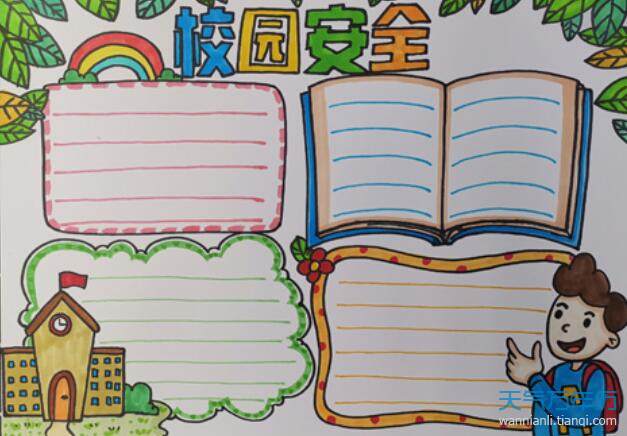 校园安全
天气万年历
wannianli.tianqi.com